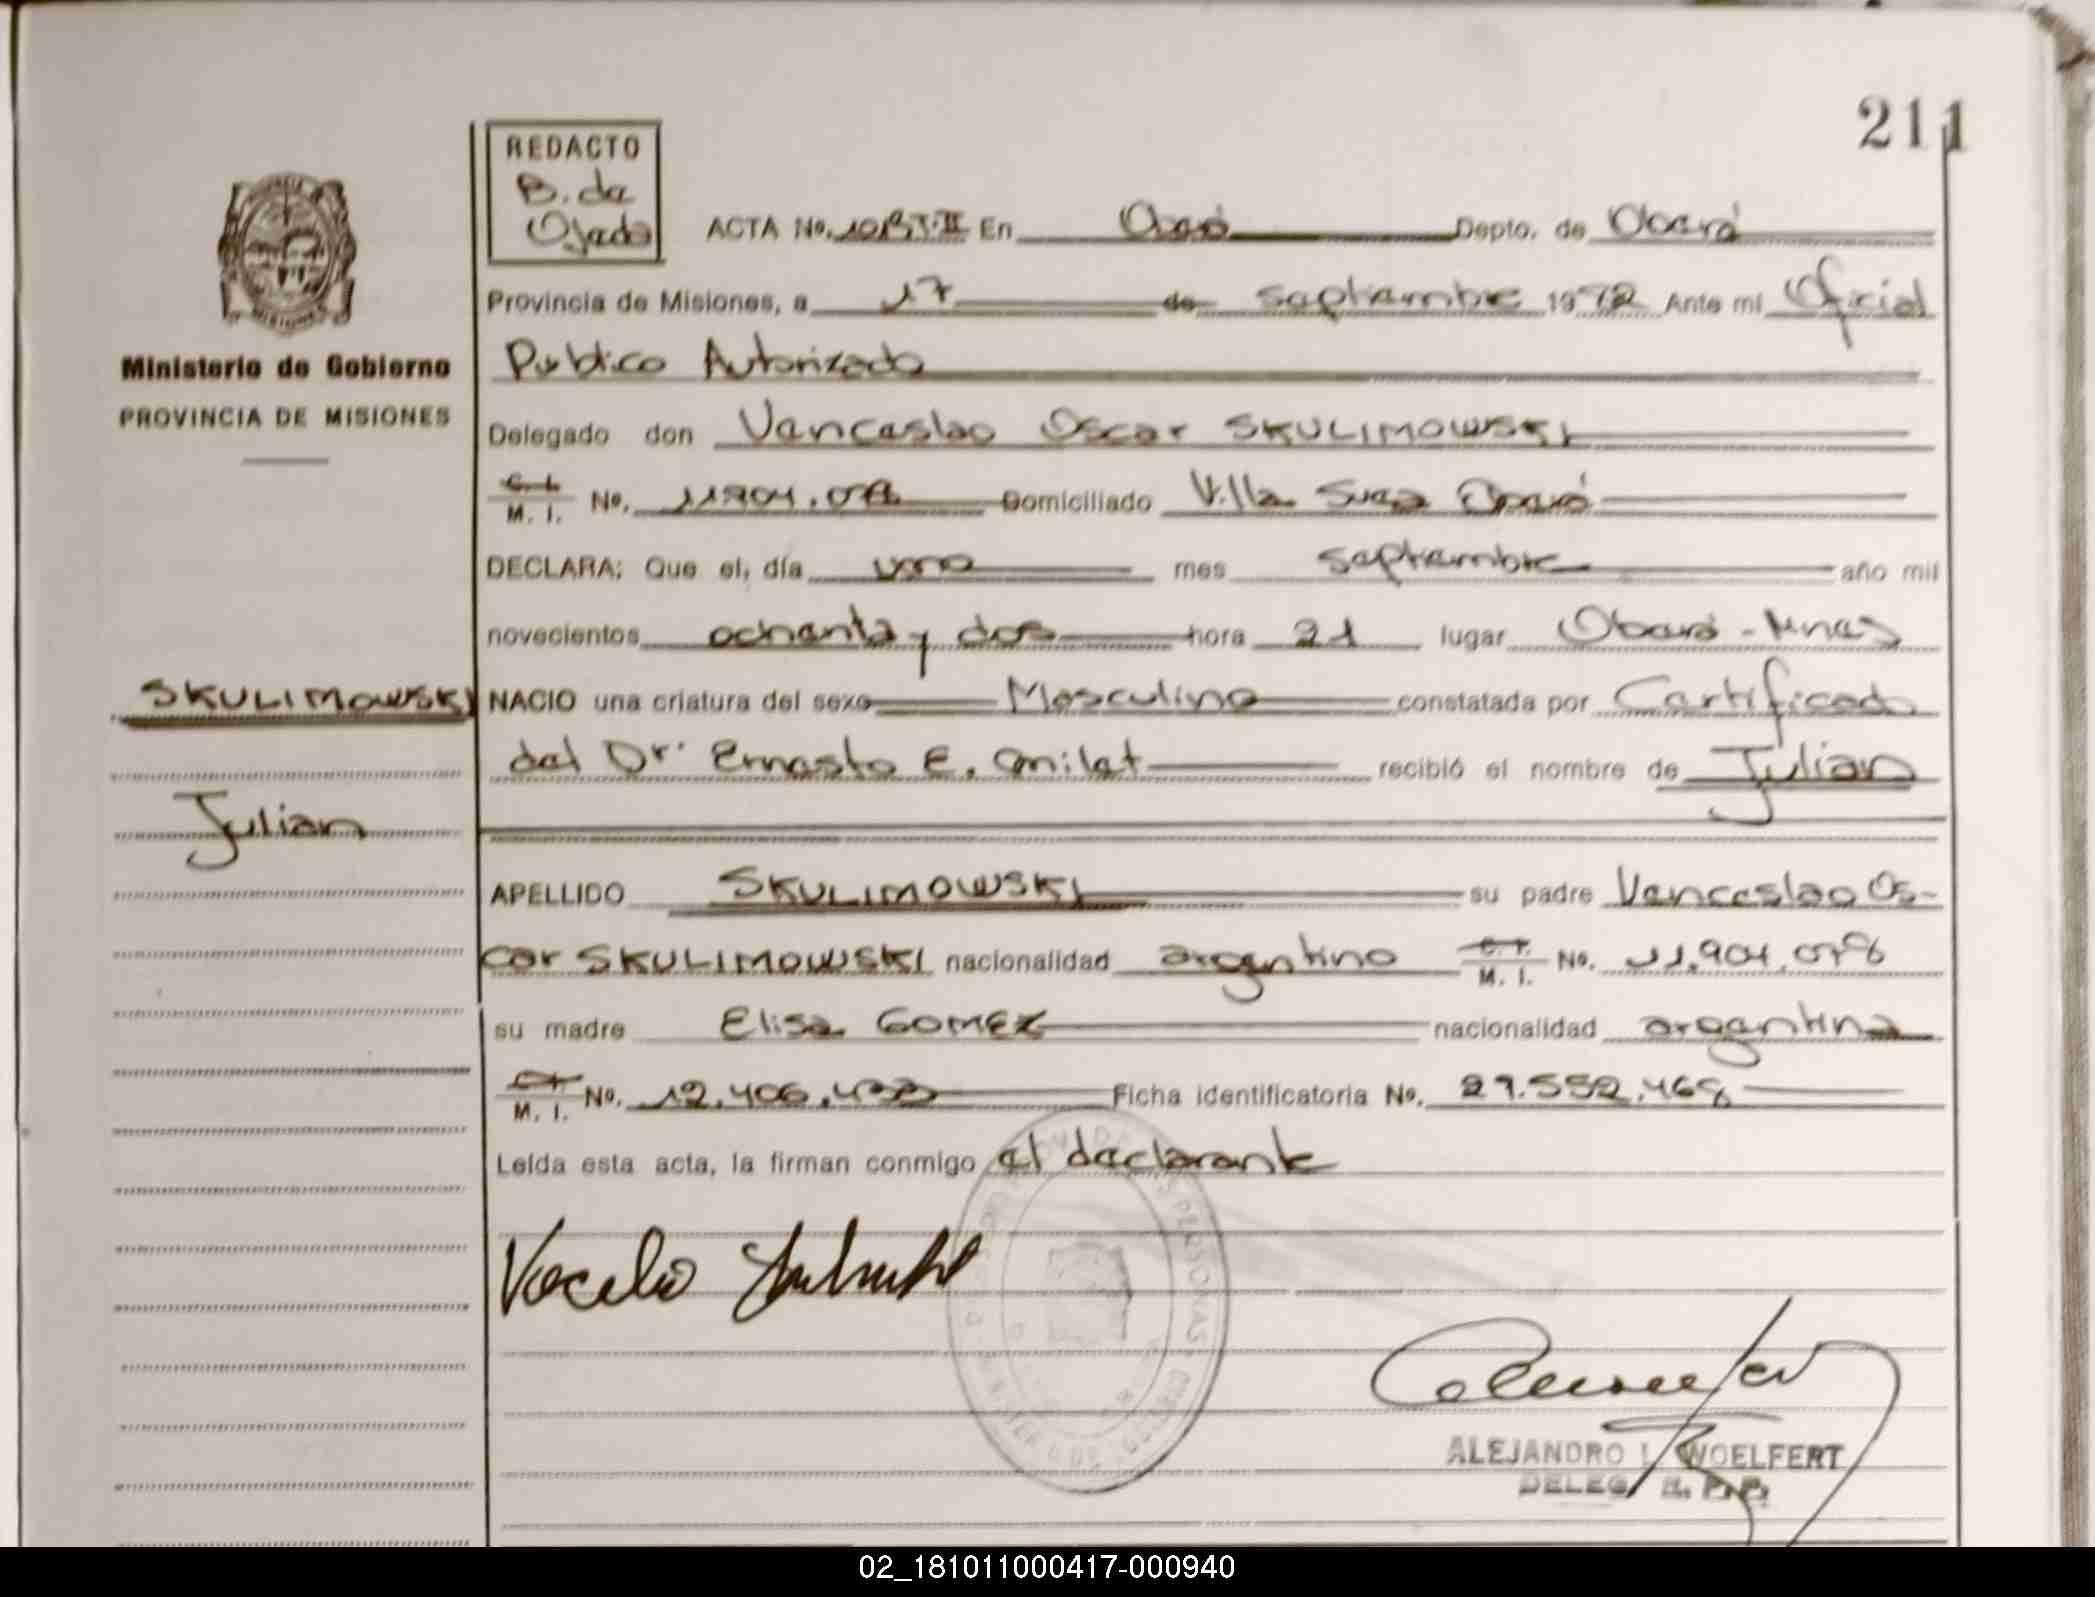 211
REDACTO
B. de
Ojeda
ACTA No. En Oberá Depto. de Oberá
Provincia de Misiones, a 17 de septiembre 1982 Ante mi Oficial
Publico Autorizado
Ministerio de Gobierno
PROVINCIA DE MISIONES
Delegado don Venceslao Oscar SKULIMOWSKI
C. I.
M. I. No. Domiciliado Villa Svea Oberá
DECLARA: Que el, día uno mes septiembre año mil
novecientos ochenta y dos hora 21 lugar Oberá - Mnes
SKULIMOWSKI
NACIO una criatura del sexo Masculino constatada por Certificado
del Dr. Ernesto E. recibió el nombre de Julian
Julian
APELLIDO SKULIMOWSKI su padre Venceslao Os-
car SKULIMOWSKI nacionalidad argentino C. I. M. I. No. 11.904.078
su madre Elisa GOMEZ nacionalidad argentina
M. I. No. 12.406. Ficha identificatoria No. 29.552.468
Leída esta acta, la firman conmigo el declarante
ALEJANDRO L. WOELFERT
DELEG R. P. P.
02_181011000417-000940